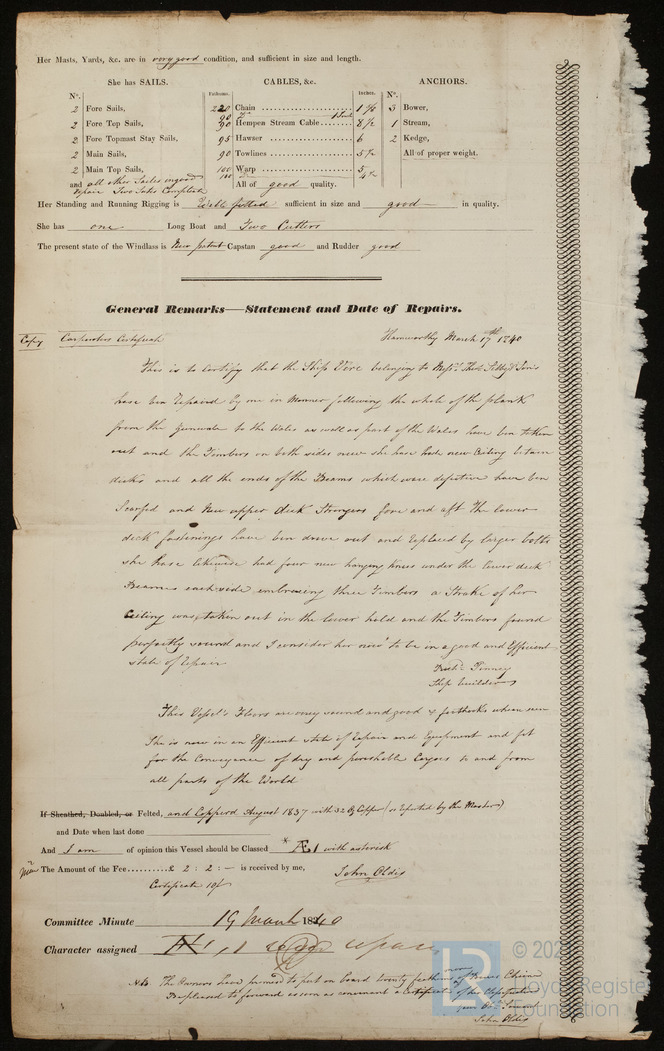 Her Masts, Yards, &c. are in very good condition, and sufficient in size and length.
She has SAILS.
No.
2 Fore Sails,
2 Fore Top Sails,
2 Fore Topmast Stay Sails,
2 Main Sails,
2 Main Top Sails,
and all other Sailes in good
repair Two Sutes Compleat
CABLES, &c.
Fathoms. Inches.
220 Chain 1 4/8
90 Do 1 Inch
90 Hempen Stream Cable 8 1/2
95 Hawser 6
90 Towlines 5 1/2
100 Warp 5
100 4 1/2
All of good quality.
ANCHORS.
No.
3 Bower,
1 Stream,
2 Kedge,
All of proper weight.
Her Standing and Running Rigging is Well fitted sufficient in size and good in quality.
She has one Long Boat and Two Cutters
The present state of the Windlass is New patent Capstan good and Rudder good
General Remarks—Statement and Date of Repairs.
Copy Carpenters Certificate
Hamworthy March 17th 1840
This is to Certify that the Ship Vere belonging to Messrs Thos & Sons
have ben repaired by me in Manner following the whole of the plank
from the Gunwale to the Wales as well as part of the Wales have ben taken
out and the Timbers on both sides new she have had new Ceiling betwen
decks and all the ends of the Beams which were defective have ben
Scarfed and New upper deck Strengers fore and aft the lower
deck fastenings have ben drove out and replaced by larger bolts
she have likewise had four new hanging knees under the lower deck
Beams each side embracing three Timbers a Strake of her
Ceiling was taken out in the lower hold and the Timbers found
perfectly sound and I consider her now to be in a good and Efficient
state of repair
Pinney
Ship builder
This Vessel's Floors are very sound and good & futtocks where seen
She is now in an Efficient state of repair and Equipment and fit
for the Conveyance of dry and perishable Cargoes to and from
all parts of the World
If Sheathed, Doubled, or Felted, and Copperd August 1837 with 32 Oz Copper (as reported by the Master)
and Date when last done
And I am of opinion this Vessel should be Classed * Æ 1 with asterisk
The Amount of the Fee £ 2 : 2 : — is received by me,
Certificate 10/
John Oldis
Committee Minute 19 March 1840
Character assigned
NB The Owners have promised to put on board twenty fathoms more of Chain
Be pleased to forward as soon as convenient a Certificate of the
your Obt Servant
John Oldis
© 202
Lloyd's Register
Foundation
LR